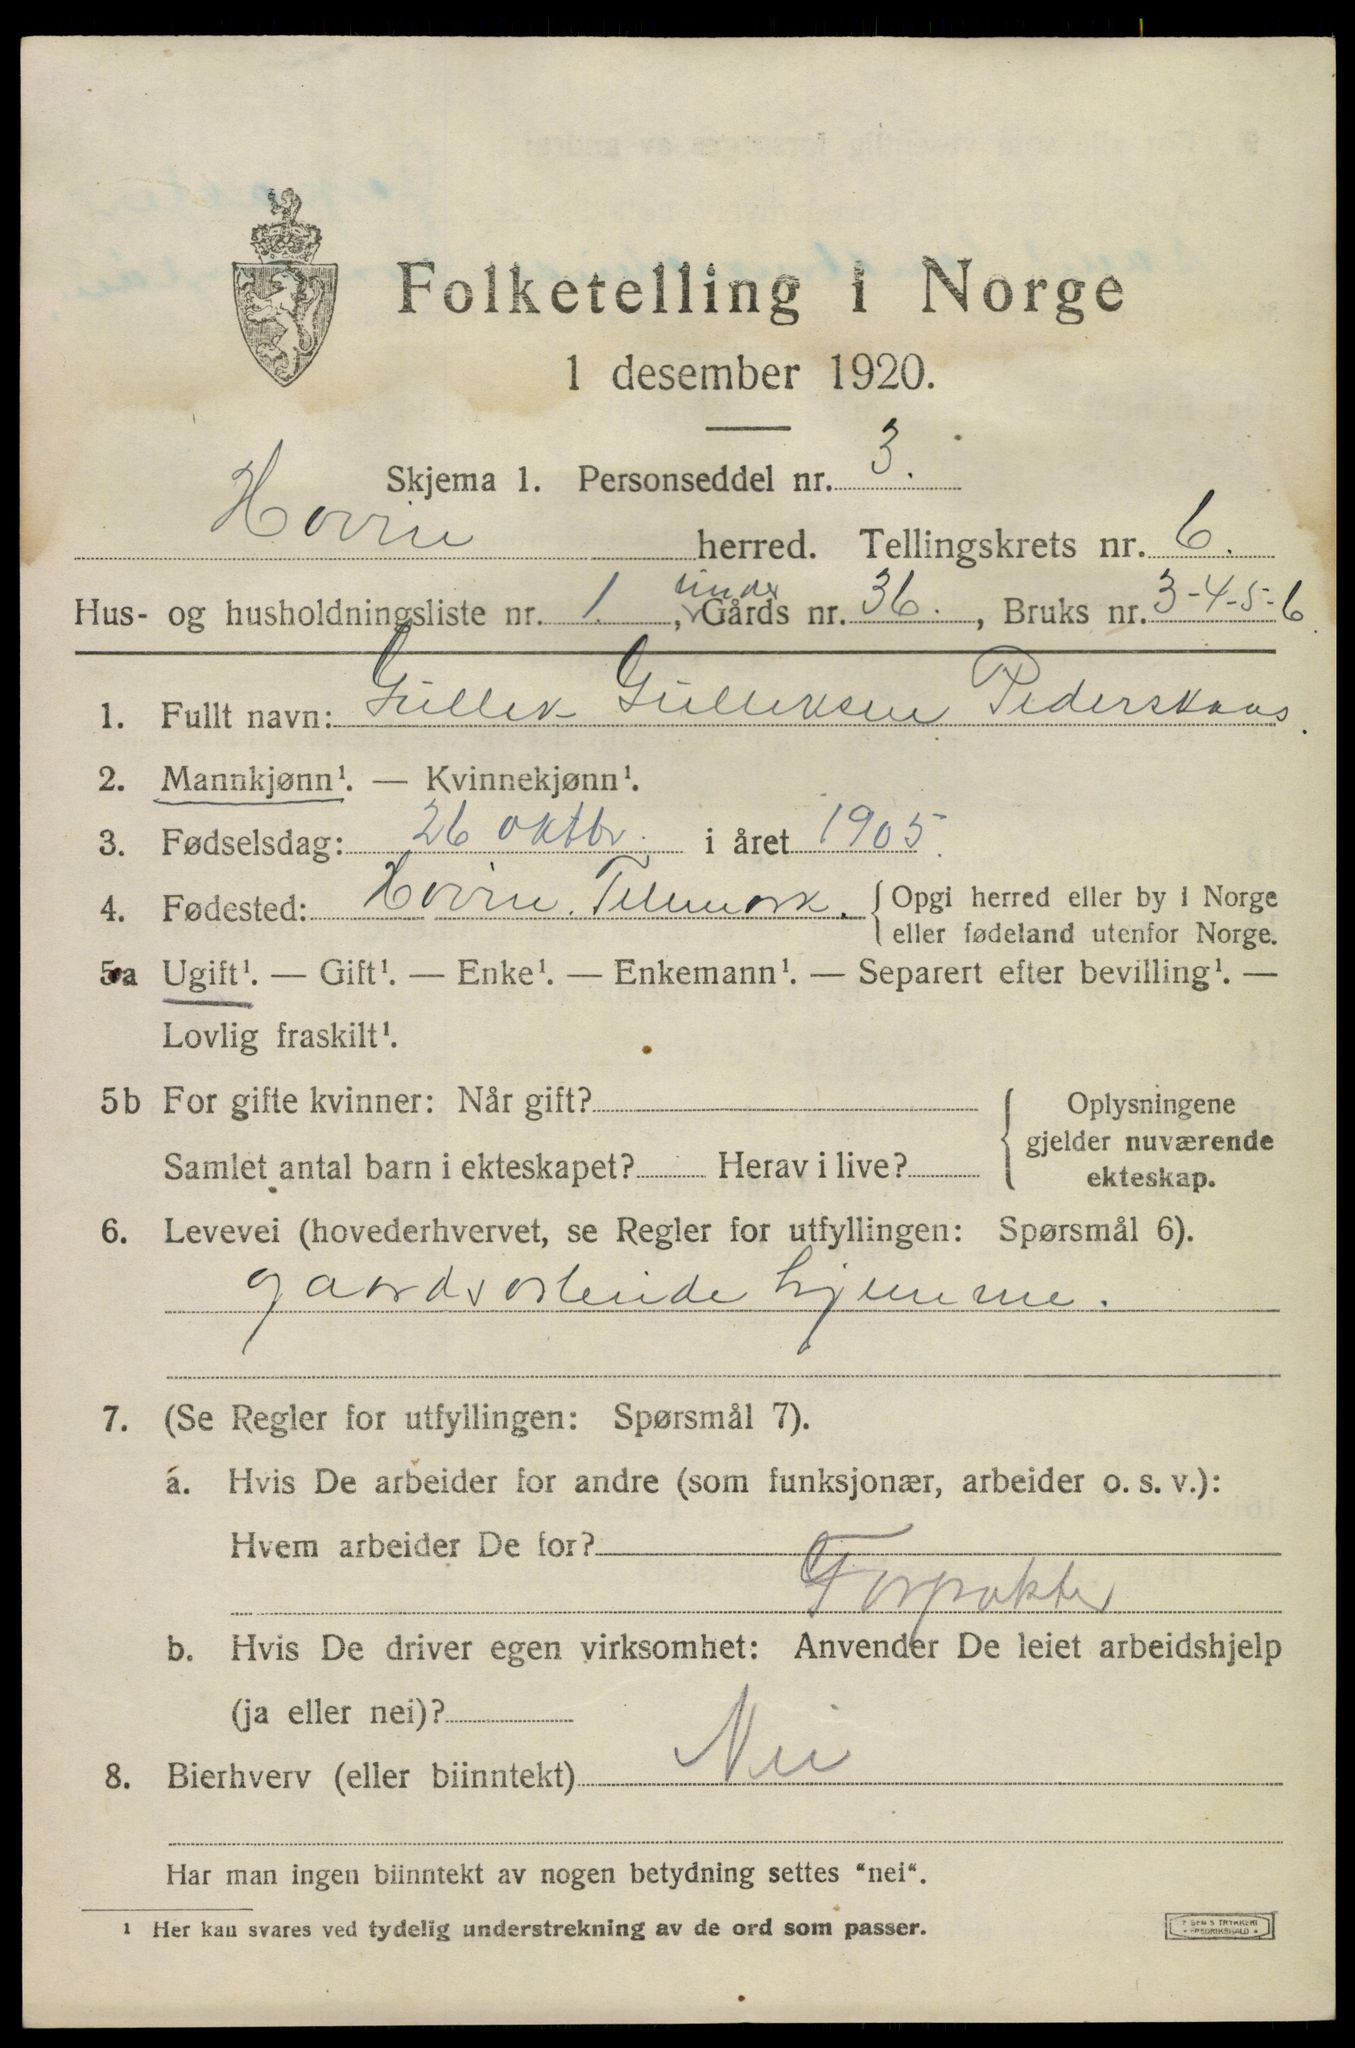 Folketelling i Norge
1 desember 1920.
Skjema 1. Personseddel nr. 3.
Hovin herred. Tellingskrets nr. 6.
Hus- og husholdningsliste nr. 1. , under Gårds nr. 36. , Bruks nr. 3-4-5-6.
1. Fullt navn: Gullek Gulleksen Pederskaas.
2. Mannkjønn¹. — Kvinnekjønn¹.
3. Fødselsdag: 26 oktbr. i året 1905.
4. Fødested: Hovin. Telemark. { Opgi herred eller by i Norge
eller fødeland utenfor Norge.
5a Ugift¹. — Gift¹. — Enke¹. — Enkemann¹. — Separert efter bevilling¹. —
Lovlig fraskilt¹.
5b For gifte kvinner: Når gift?
Samlet antal barn i ekteskapet? Herav i live?
{ Oplysningene
gjelder nuværende
ekteskap.
6. Levevei (hovederhvervet, se Regler for utfyllingen: Spørsmål 6).
gaardsarbeide hjemme.
7. (Se Regler for utfyllingen: Spørsmål 7).
a. Hvis De arbeider for andre (som funksjonær, arbeider o. s. v.):
Hvem arbeider De for?
Forpakter
b. Hvis De driver egen virksomhet: Anvender De leiet arbeidshjelp
(ja eller nei)?
8. Bierhverv (eller biinntekt) Nei
Har man ingen biinntekt av nogen betydning settes "nei".
¹ Her kan svares ved tydelig understrekning av de ord som passer.
TRYKKERI
FREDRIKSHALD